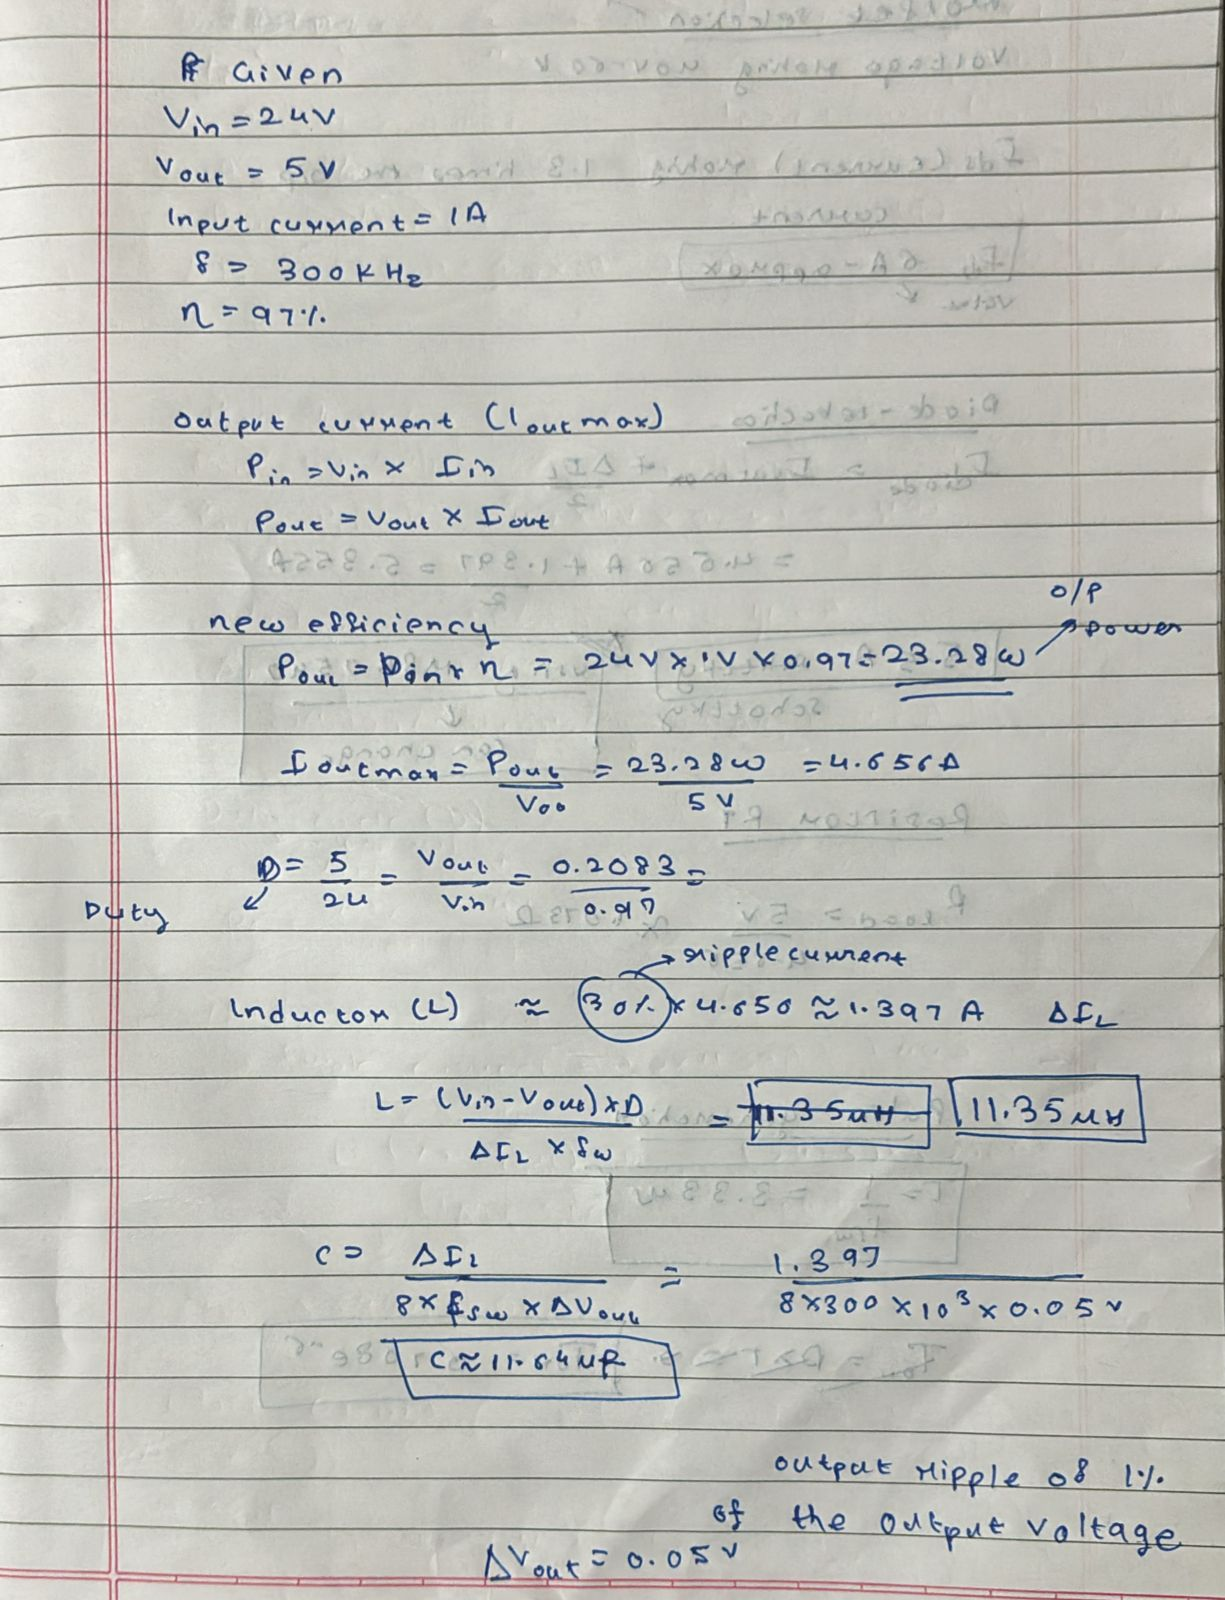 Given
Vin = 24V
Vout = 5V
Input current = 1A
f = 300KHz
η = 97%
output current (Ioutmax)
Pin = Vin × Iin
Pout = Vout × Iout
new efficiency
O/P power
Pout = Pin × η = 24V × 1V × 0.97 = 23.28W
Ioutmax = Pout/Voo = 23.28W/5V = 4.656A
Duty
D = 5/24 = Vout/Vin = 0.2083/0.97 =
ripple current
Inductor (L) ≈ 30% × 4.656 ≈ 1.397 A ΔIL
L = (Vin - Vout) × D / ΔIL × fw = 11.35uH 11.35uH
C = ΔIL / 8 × fsw × ΔVout = 1.397 / 8×300×10³×0.05V
C ≈ 11.64uF
output ripple of 1%
of the output voltage
ΔVout = 0.05V